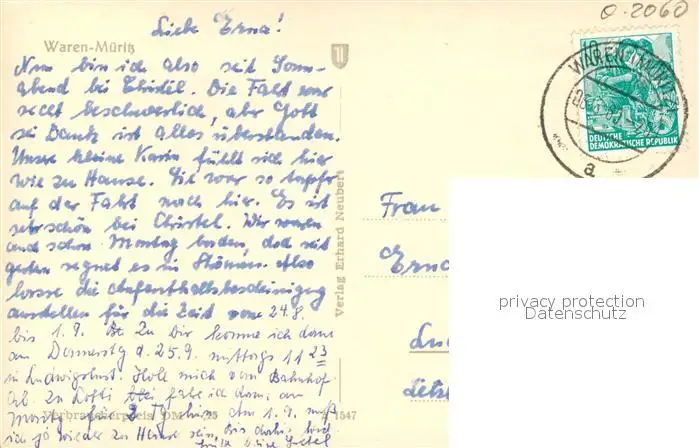 O-2060
Liebe Erna!
Waren-Müritz
Nun bin ich also seit Sonn-
abend bei Christel. Die Fahrt war
recht beschwerlich, aber Gott
sei Dank ist alles überstanden.
Unsere kleine Karin fühlt sich hier
wie zu Hause. Sie war so tapfer
auf der Fahrt nach hier. Es ist
sehr schön bei Christel. Wir waren
auch schon Montag baden, doch seit
gestern regnet es in Strömen. Also
lasse die Aufenthaltsbescheinigung
ausstellen für die Zeit vom 24.8.
bis 1.9. Zu Dir komme ich dann
am Donnerstag d. 25.9. mittags 11 23
in Ludwigslust. Hole mich vom Bahnhof
ab. Zu Lotti fahre ich dann am
für 2 Tg. hin. Am 1.9. muß
ich ja wieder zu Hause sein. Bis dahin
Verbraucherpreis DM
1547
Verlag Erhard Neubert
WAREN (MÜRITZ)
a
10
DEUTSCHE
DEMOKRATISCHE REPUBLIK
Frau
Erna
privacy protection
Datenschutz